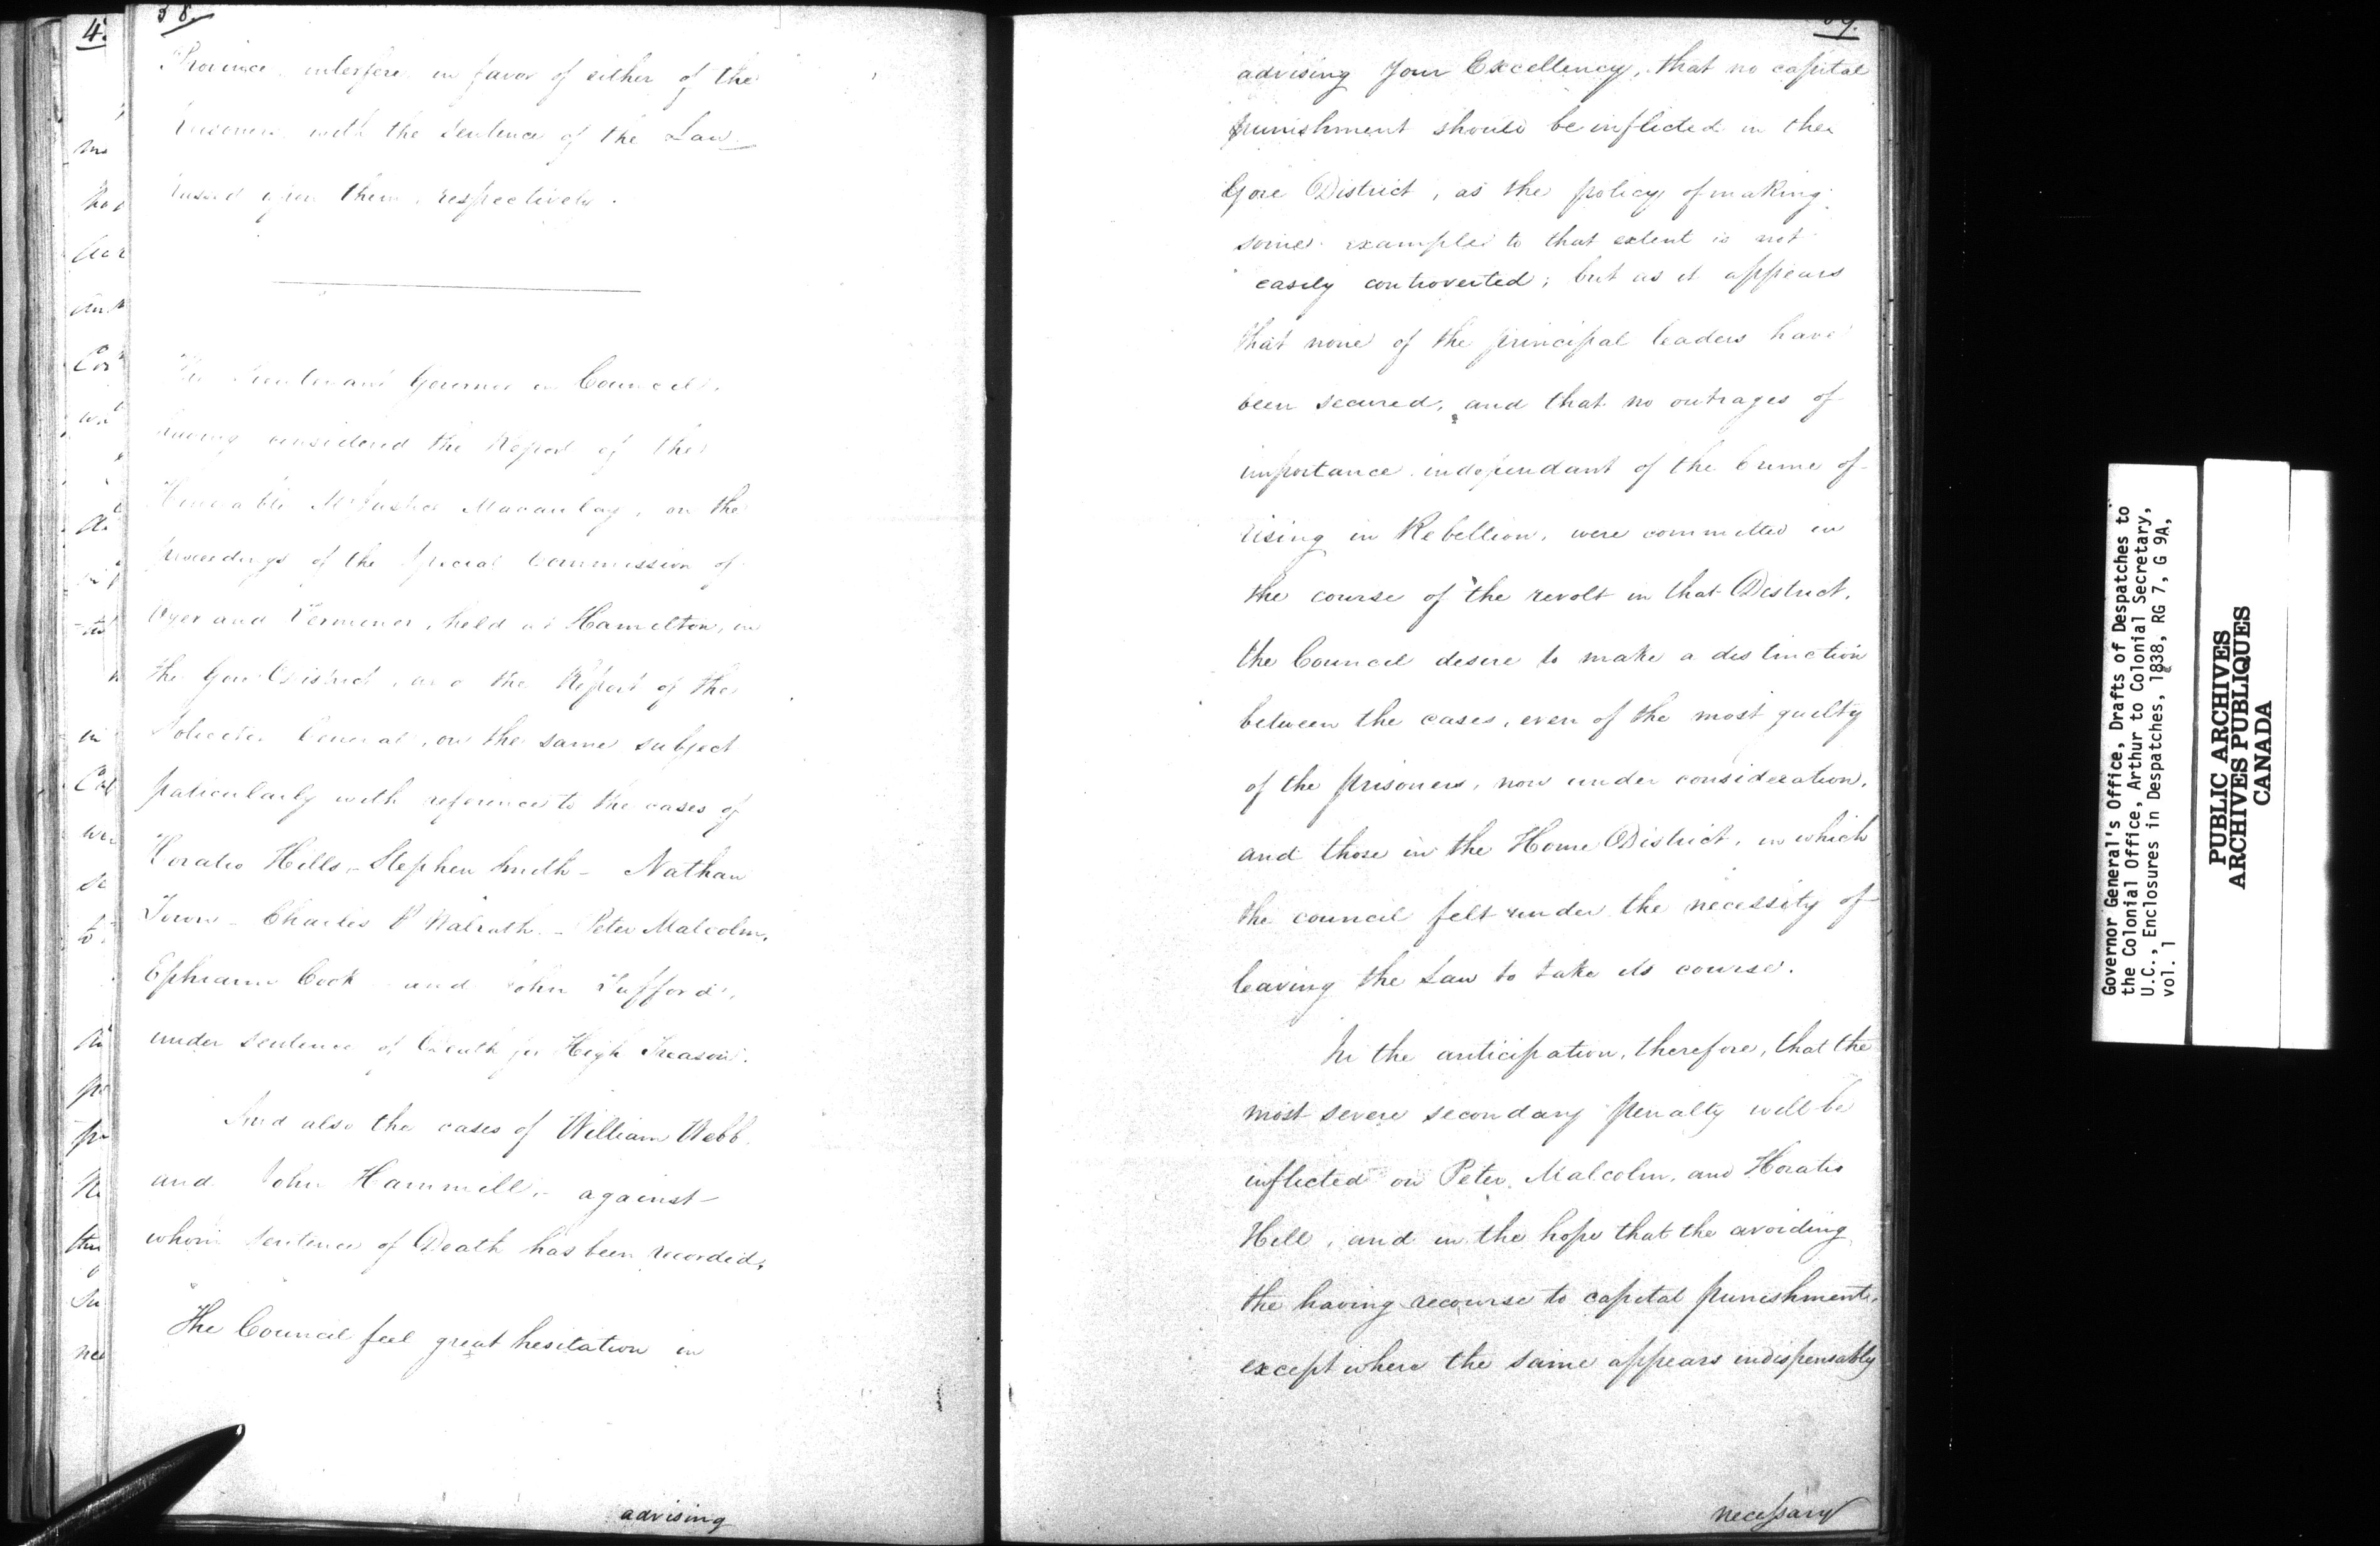 38.
Province, interfere in favor of either of the
Prisoners with the Sentence of the Law
passed upon them, respectively.
The Lieutenant Governor in Council,
having considered the Report of the
Honorable Mr Justice Macaulay, on the
proceedings of the Special Commission of
Oyer and Terminer, held at Hamilton, in
the Gore District, and the Report of the
Solicitor General, on the same subject
paticularly with reference to the cases of
Horatio Hills, - Stephen Smith - Nathan
Town - Charles P Walrath - Peter Malcolm,
Ephraim Cook and John Tufford,
under sentence of Death for High Treason.
And also the cases of William Webb
and John Hammill, - against
whom sentence of Death has been recorded.
The Council feel great hesitation in
advising
39.
advising Your Excellency, that no capital
punishment should be inflicted in the
Gore District, as the policy of making
some example to that extent is not
easily controverted; but as it appears
that none of the principal leaders have
been secured, and that no outrages of
importance independant of the Crime of
rising in Rebellion, were committed in
the course of the revolt in that District,
the Council desire to make a distinction
between the cases, even of the most guilty
of the prisoners, now under consideration,
and those in the Home District, in which
the council felt under the necessity of
leaving the Law to take its course.
In the anticipation, therefore, that the
most severe secondary penalty will be
inflicted on Peter Malcolm, and Horatio
Hill, and in the hope that the avoiding
the having recourse to capital punishment,
except where the same appears indispensably
necessary
Governor General's Office, Drafts of Despatches to
the Colonial Office, Arthur to Colonial Secretary,
U.C., Enclosures in Despatches, 1838, RG 7, G 9A,
vol. 1
PUBLIC ARCHIVES
ARCHIVES PUBLIQUES
CANADA